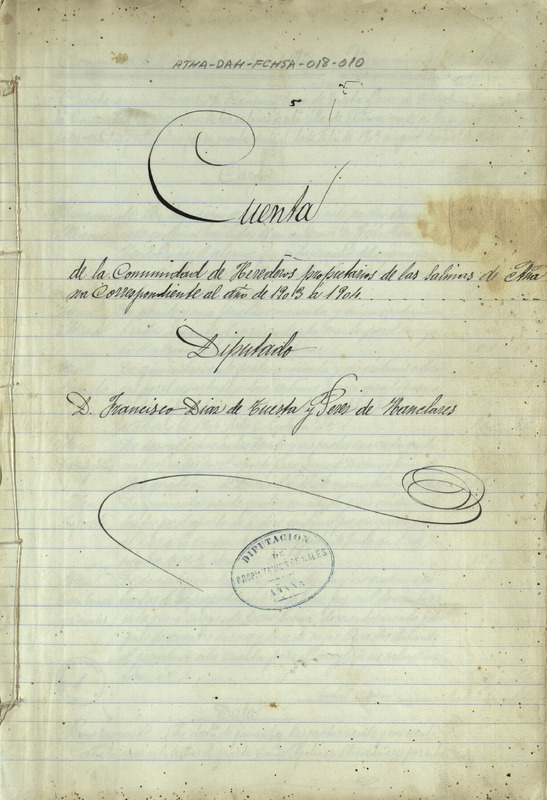 ATHA-DAH-FCHSA-018-010
5
Cuenta
de la Comunidad de Herederos propietarios de las Salinas de Aña
na Correspondiente al año de 1903 á 1904
Diputado
D. Francisco Diaz de Tuesta y Perez de Nanclares
DIPUTACION
DE
PROPIETARIOS DE SALES
AÑANA